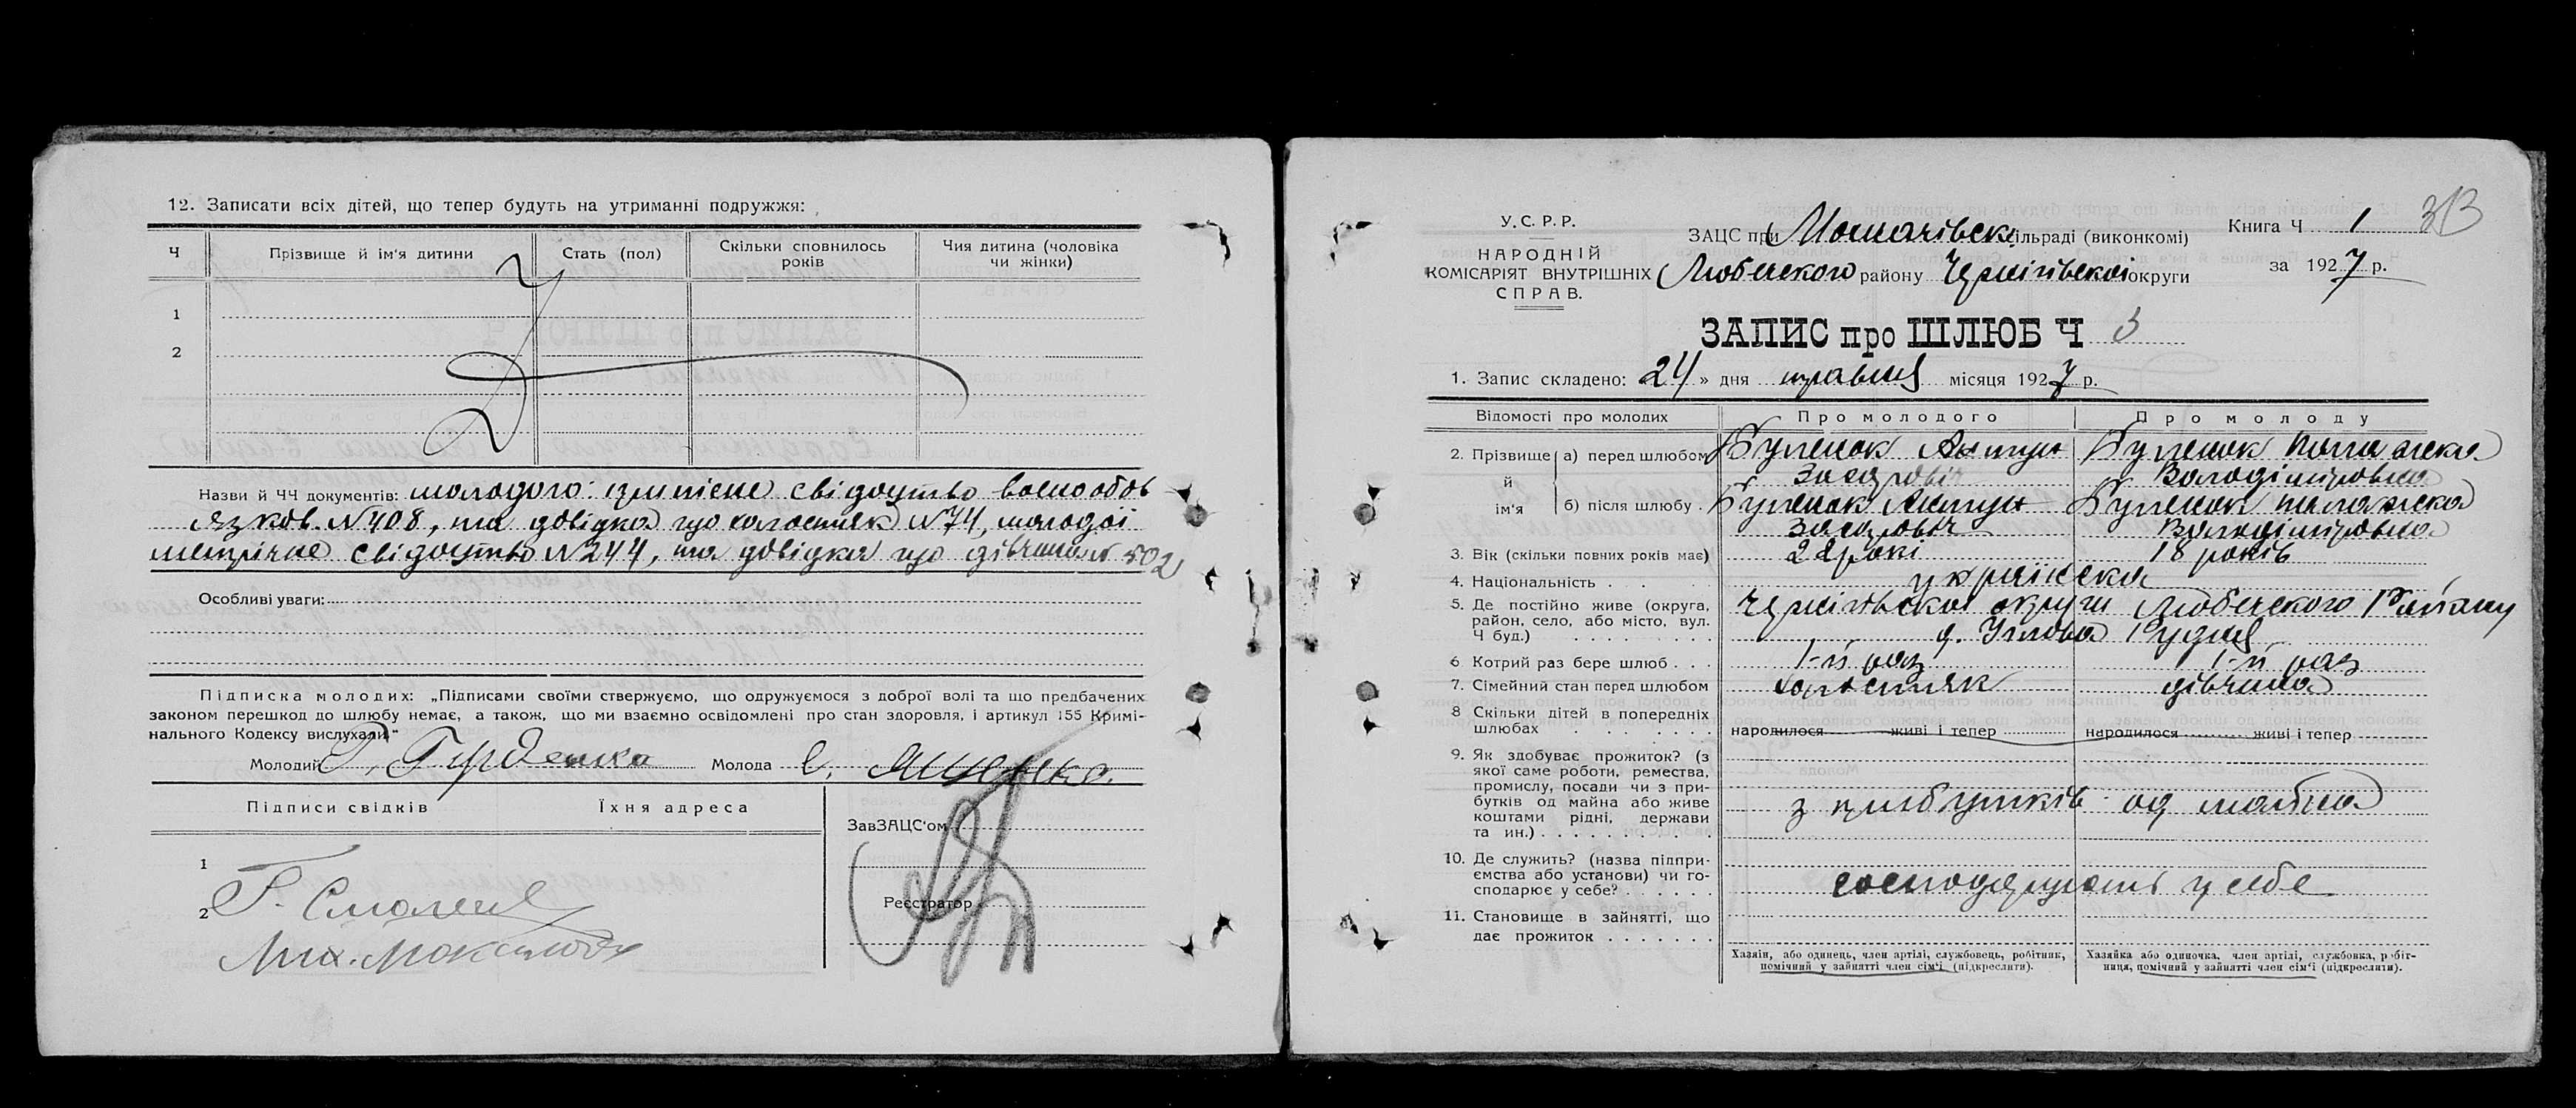 12. Записати всіх дітей, що тепер будуть на утриманні подружжя:
Ч
Прізвище й ім'я дитини
Стать (пол)
Скільки сповнилось років
Чия дитина (чоловіка чи жінки)
1
2
Назви й ЧЧ документів: молодого: приписне свідоцтво воєнообов
язков. №408, та довідка про холостяк №74, молодої
метрічне свідоцтво №244, та довідка про дівчина № 502
Особливі уваги:
Підписка молодих: „Підписами своїми ствержуємо, що одружуємося з доброї волі та що предбачених
законом перешкод до шлюбу немає, а також, що ми взаємно освідомлені про стан здоровля, і артикул 155 Кримі-
нального Кодексу вислухали“
Молодий
Молода
Підписи свідків
Їхня адреса
ЗавЗАЦС'ом
1
2
Реєстратор
У.С.Р.Р.
НАРОДНІЙ
КОМІСАРІЯТ ВНУТРІШНІХ
СПРАВ.
ЗАЦС при сільраді (виконкомі)
Любецкого району Чернігівскої округи
Книга Ч 1
за 1927 р.
ЗАПИС про ШЛЮБ Ч 3
1. Запис складено: 24 » дня травня місяця 1927 р.
Відомості про молодих
Про молодого
Про молоду
2. Прізвище й ім'я
а) перед шлюбом
Володіміровна
б) після шлюбу
Володіміровна
3. Вік (скільки повних років має)
22 рокі
18 років
4. Національність . .
українска
5. Де постійно живе (округа,
район, село, або місто, вул.
Ч буд.)
Чернігівскої округи Любецкого Району
Рудня
6 Котрий раз бере шлюб . . .
1-й раз
1-й раз
7. Сімейний стан перед шлюбом
холостяк
дівчина
8 Скільки дітей в попередніх
шлюбах
народилося живі і тепер
народилося живі і тепер
9. Як здобуває прожиток? (з
якої саме роботи, ремества,
промислу, посади чи з при-
бутків од майна або живе
коштами рідні, держави
та ин.)
з прибутків од майна
10. Де служить? (назва підпри-
ємства або установи) чи го-
сподарює у себе?
господарують у себе
11. Становище в зайнятті, що
дає прожиток
Хазяін, або одинець, член артілі, службовець, робітник,
помічний у зайнятті член сім'ї (підкреслити).
Хазяйка або одиночка, член артілі, службовка, робіт-
ниця, помічний у зайнятті член сім'ї (підкреслити).